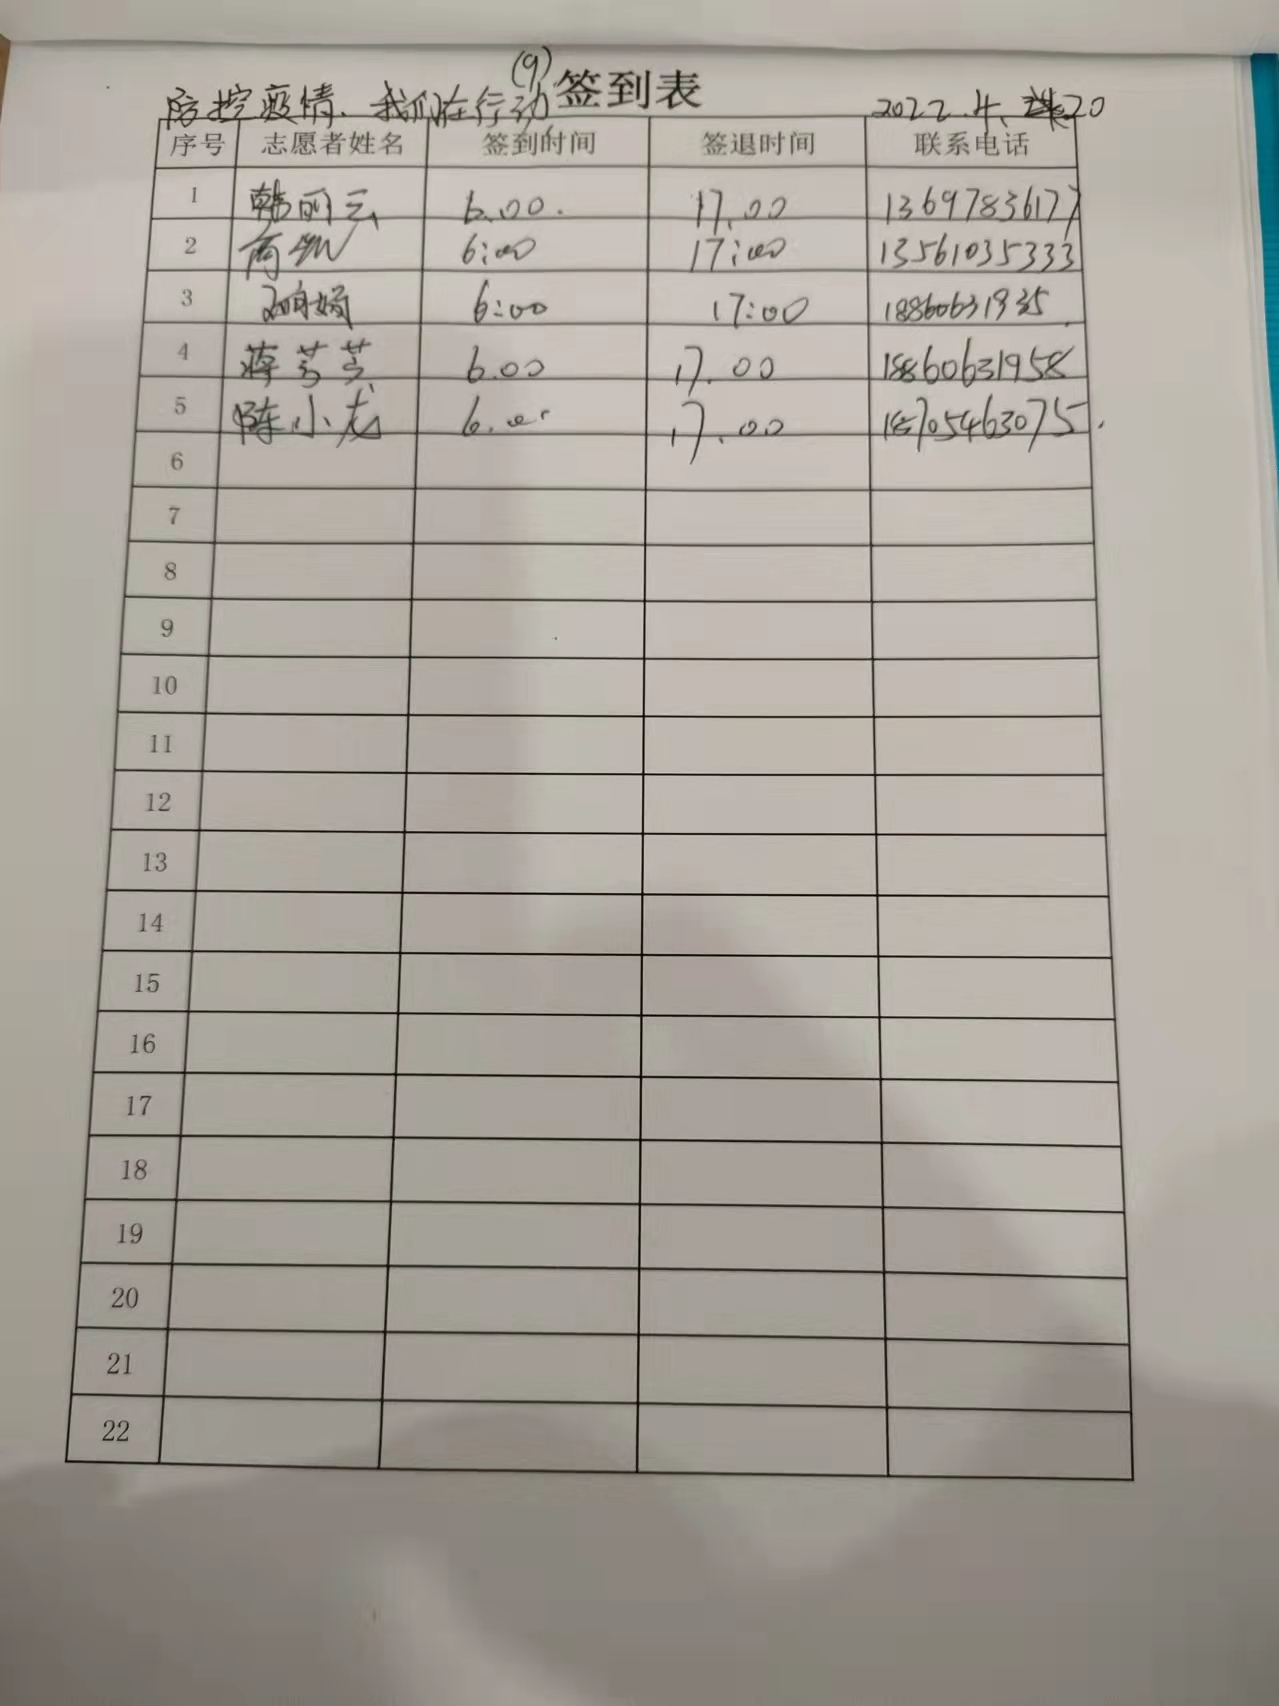 (9)
防控疫情、我们在行动 签到表 2022.4.20
序号 志愿者姓名 签到时间 签退时间 联系电话
1 韩丽云 6.00. 17.00 13697836177
2 6:00 17:00 13561035333
3 6:00 17:00 18860631935
4 蒋芸芸 6.00 17.00 18860631958
5 陈小龙 6.00 17.00 18705463075.
6
7
8
9
10
11
12
13
14
15
16
17
18
19
20
21
22